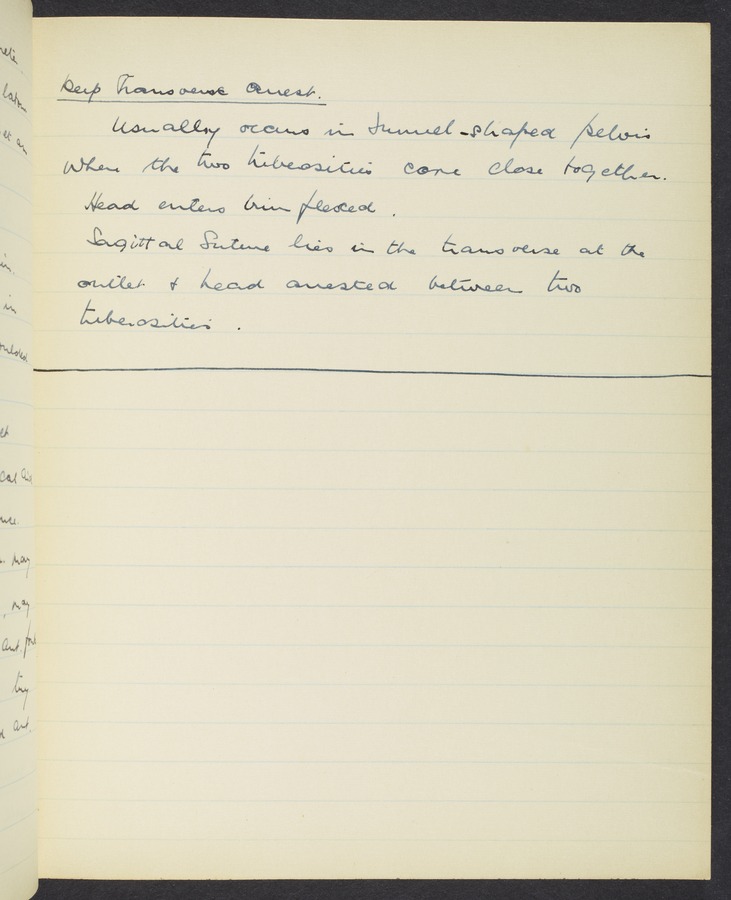 Deep Transverse Arrest.
Usually occurs in funnel-shaped pelvis
when the two tuberosities come close together.
Head enters brim flexed.
Sagittal Suture lies in the transverse at the
outlet & head arrested between two
tuberosities.
in
may
, may
try